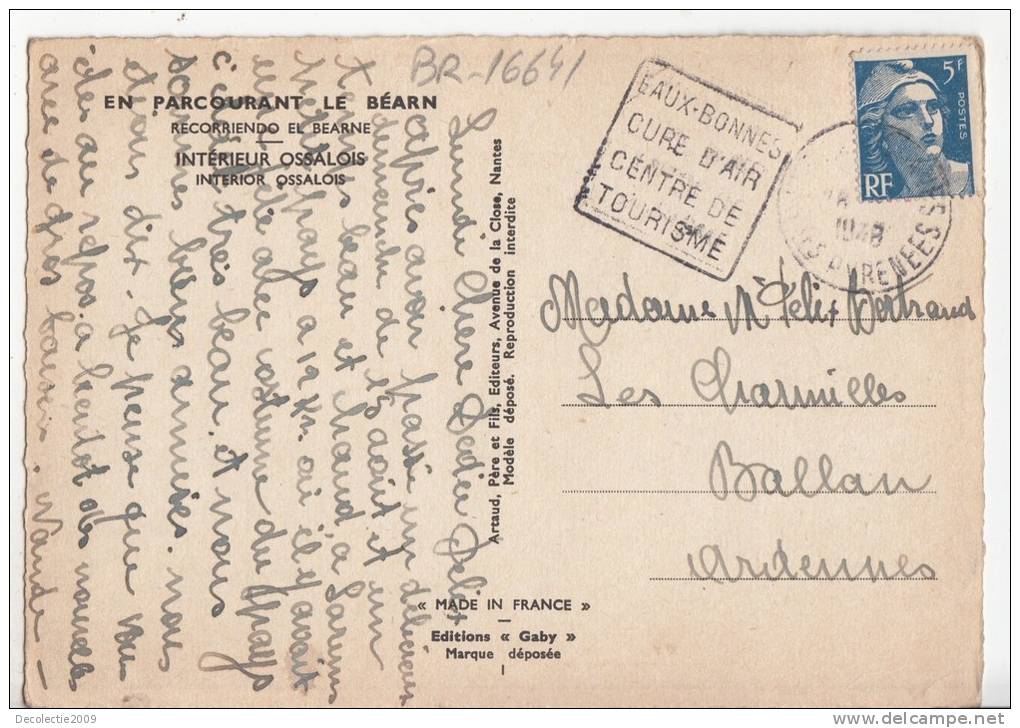 BR-16641
EN PARCOURANT LE BÉARN
RECORRIENDO EL BEARNE
INTÉRIEUR OSSALOIS
INTERIOR OSSALOIS
EAUX-BONNES
CURE D'AIR
CENTRE DE
TOURISME
5F
POSTES
RF
1948
PYRENEES
Lundi Chère Dédée Félix
après avoir passé un délicieux
dimanche de 15 août et un
temps beau et chaud à Laruns
petit pays a 12 Km. où il y avait
ancienne du pays
c'était très beau. et nous
sommes bien arrivés. nous
étions dix. Je pense que vous
êtes au repos. à bientôt des nouvelles
avec de gros baisers. Wande -
Artaud, Père et Fils, Editeurs, Avenue de la Close, Nantes
Modèle déposé. Reproduction interdite
Madame Félix Bertrand
Les Charmilles
Ballan
Ardennes
« MADE IN FRANCE »
Editions « Gaby »
Marque déposée
Decolectie2009